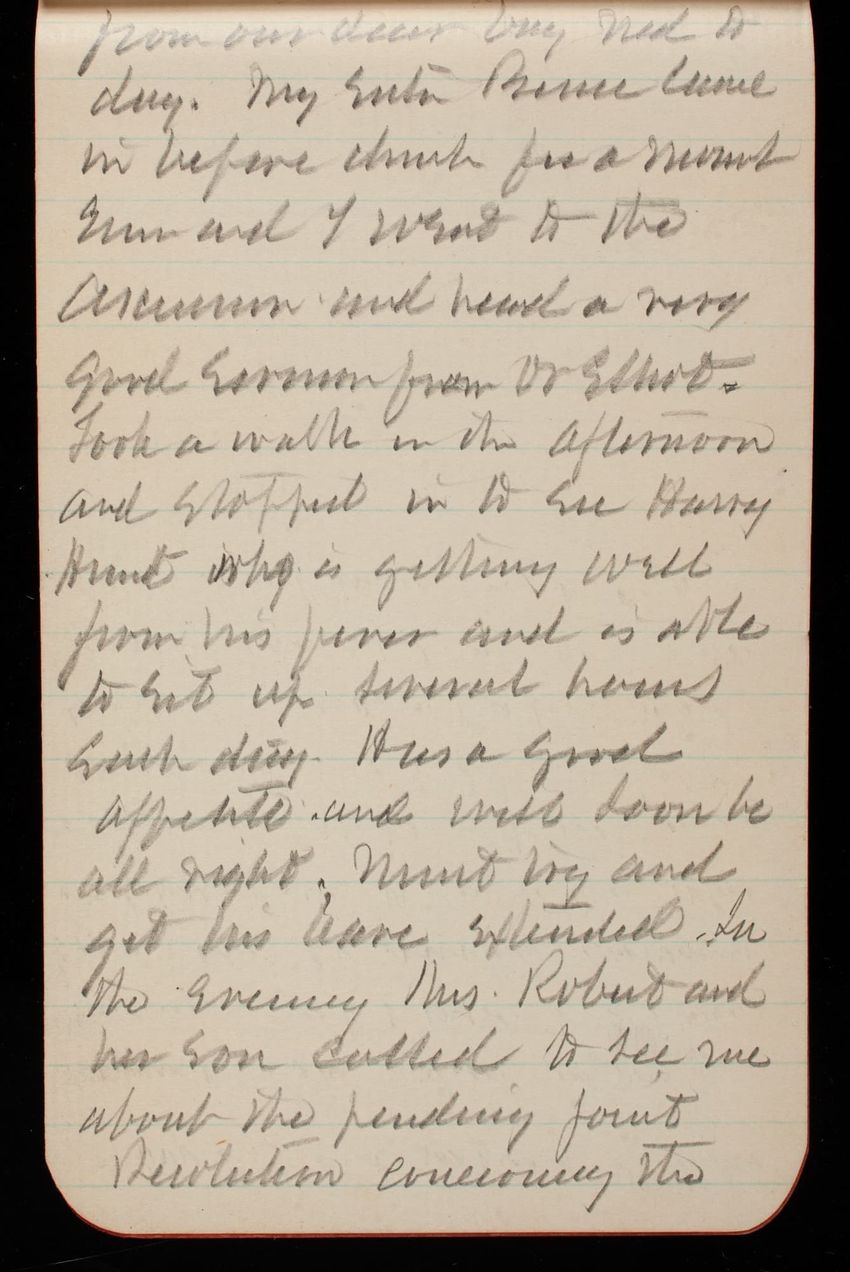 from our dear boy Ned to
day. My Sister Bessie came
in before church for a moment
Emm and I went to the
Ascension and heard a very
good Sermon from Dr Elliot.
Took a walk in the afternoon
and stopped in to see Harry
Hunt who is getting well
from his fever and is able
to sit up several hours
Each day. Has a good
appetite and will soon be
all right. Must try and
get his leave extended. In
the evening Mrs. Robert and
her son called to see me
about the pending Joint
Resolution concerning the